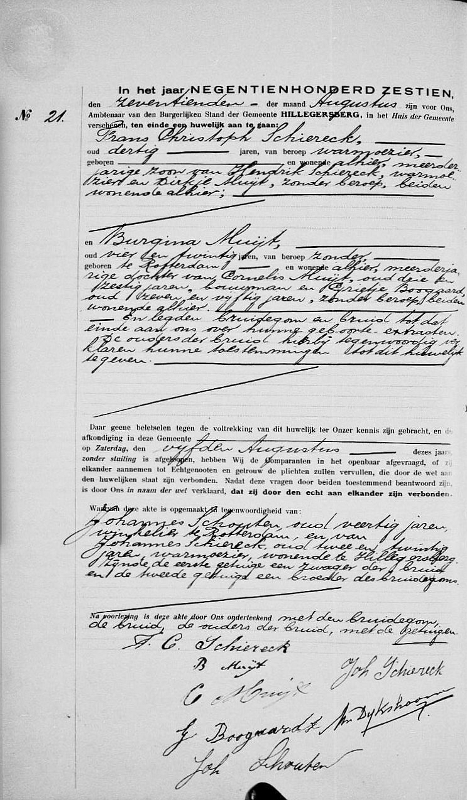 In het jaar NEGENTIENHONDERD ZESTIEN,
den zeventienden der maand Augustus zijn voor Ons,
Ambtenaar van den Burgerlijken Stand der Gemeente HILLEGERSBERG, in het Huis der Gemeente
verschenen, ten einde een huwelijk aan te gaan:
№ 21.
Frans Christoph Schiereck,
oud dertig jaren, van beroep warmoezier,
geboren en wonende alhier, meerder
jarige zoon van Hendrik Schiereck, warmoe
zier en Muijt, zonder beroep, beiden
wonende alhier;
en Burgina Muijt,
oud vier en twintig jaren, van beroep zonder,
geboren te Rotterdam en wonende alhier, meerderja
rige dochter van Cornelis Muijt, oud drie en
zestig jaren, bouwman en Grietje Boogaard,
oud zeven en vijftig jaren, zonder beroep, beiden
wonende alhier.
En legden bruidegom en bruid tot dat
einde aan ons over hunne geboorte extracten.
De ouders der bruid hierbij tegenwoordig ver
klaren hunne toestemming tot dit huwelijk
te geven.
Daar geene beletselen tegen de voltrekking van dit huwelijk ter Onzer kennis zijn gebracht, en de
afkondiging in deze Gemeente
op Zaterdag, den vijfden Augustus dezes jaars
zonder stuiting is afgeloopen, hebben Wij de Comparanten in het openbaar afgevraagd, of zij
elkander aannemen tot Echtgenooten en getrouw de plichten zullen vervullen, die door de wet aan
den huwelijken staat zijn verbonden. Nadat deze vragen door beiden toestemmend beantwoord zijn,
is door Ons in naam der wet verklaard, dat zij door den echt aan elkander zijn verbonden.
Waarvan deze akte is opgemaakt in tegenwoordigheid van:
Johannes Schouten, oud veertig jaren,
winkelier te Rotterdam, en van
Johannes Schiereck, oud twee en twintig
jaren, warmoezier, wonende te Hillegersberg
zijnde de eerste getuige een zwager der bruid
en de tweede getuige een broeder des bruidegoms.
Na voorlezing is deze akte door Ons onderteekend met den bruidegom,
de bruid, de ouders der bruid, met de getuigen
F. C. Schiereck
B Muijt
Joh Schiereck
C Muijt
G Boogaardt
Joh Schouten